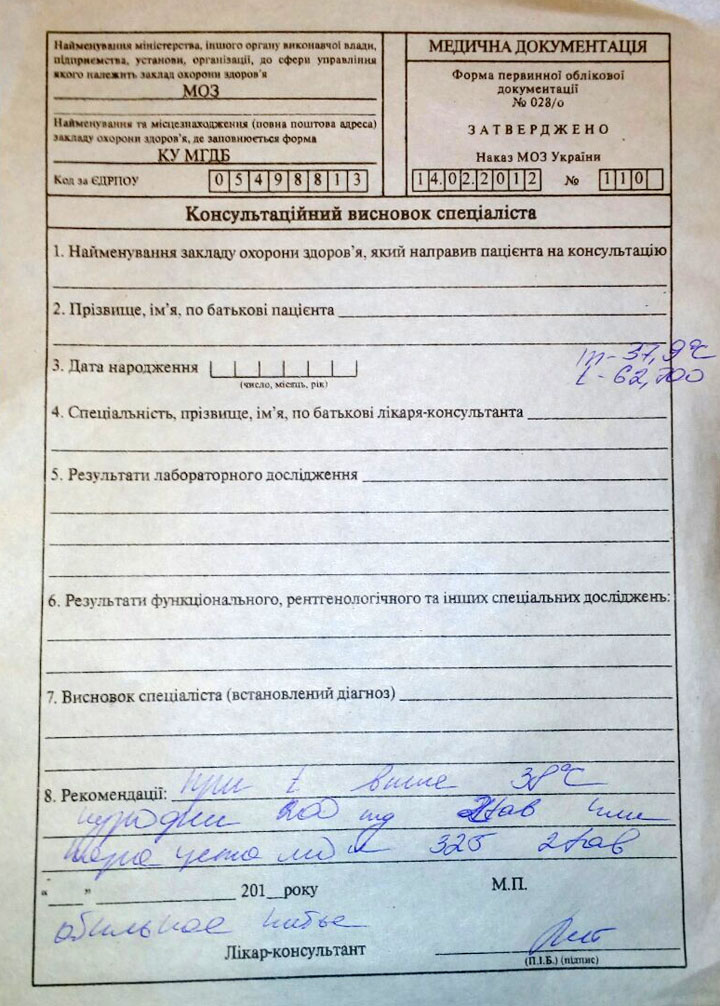 Найменування міністерства, іншого органу виконавчої влади,
підприємства, установи, організації, до сфери управління
якого належить заклад охорони здоров'я
МОЗ
Найменування та місцезнаходження (повна поштова адреса)
закладу охорони здоров'я, де заповнюється форма
КУ МГДБ
Код за ЄДРПОУ 05498813
МЕДИЧНА ДОКУМЕНТАЦІЯ
Форма первинної облікової
документації
№ 028/о
ЗАТВЕРДЖЕНО
Наказ МОЗ України
14.02.2012 № 110
Консультаційний висновок спеціаліста
1. Найменування закладу охорони здоров'я, який направив пацієнта на консультацію
2. Прізвище, ім'я, по батькові пацієнта
m-37,9°C
3. Дата народження
(число, місяць, рік)
L-62,700
4. Спеціальність, прізвище, ім'я, по батькові лікаря-консультанта
5. Результати лабораторного дослідження
6. Результати функціонального, рентгенологічного та інших спеціальних досліджень:
7. Висновок спеціаліста (встановлений діагноз)
8. Рекомендації: при t выше 38°C
200 таб или
парацетамол 325 2таб
“ ” 201 року М.П.
обильное питье
Лікар-консультант
(П.І.Б.) (підпис)